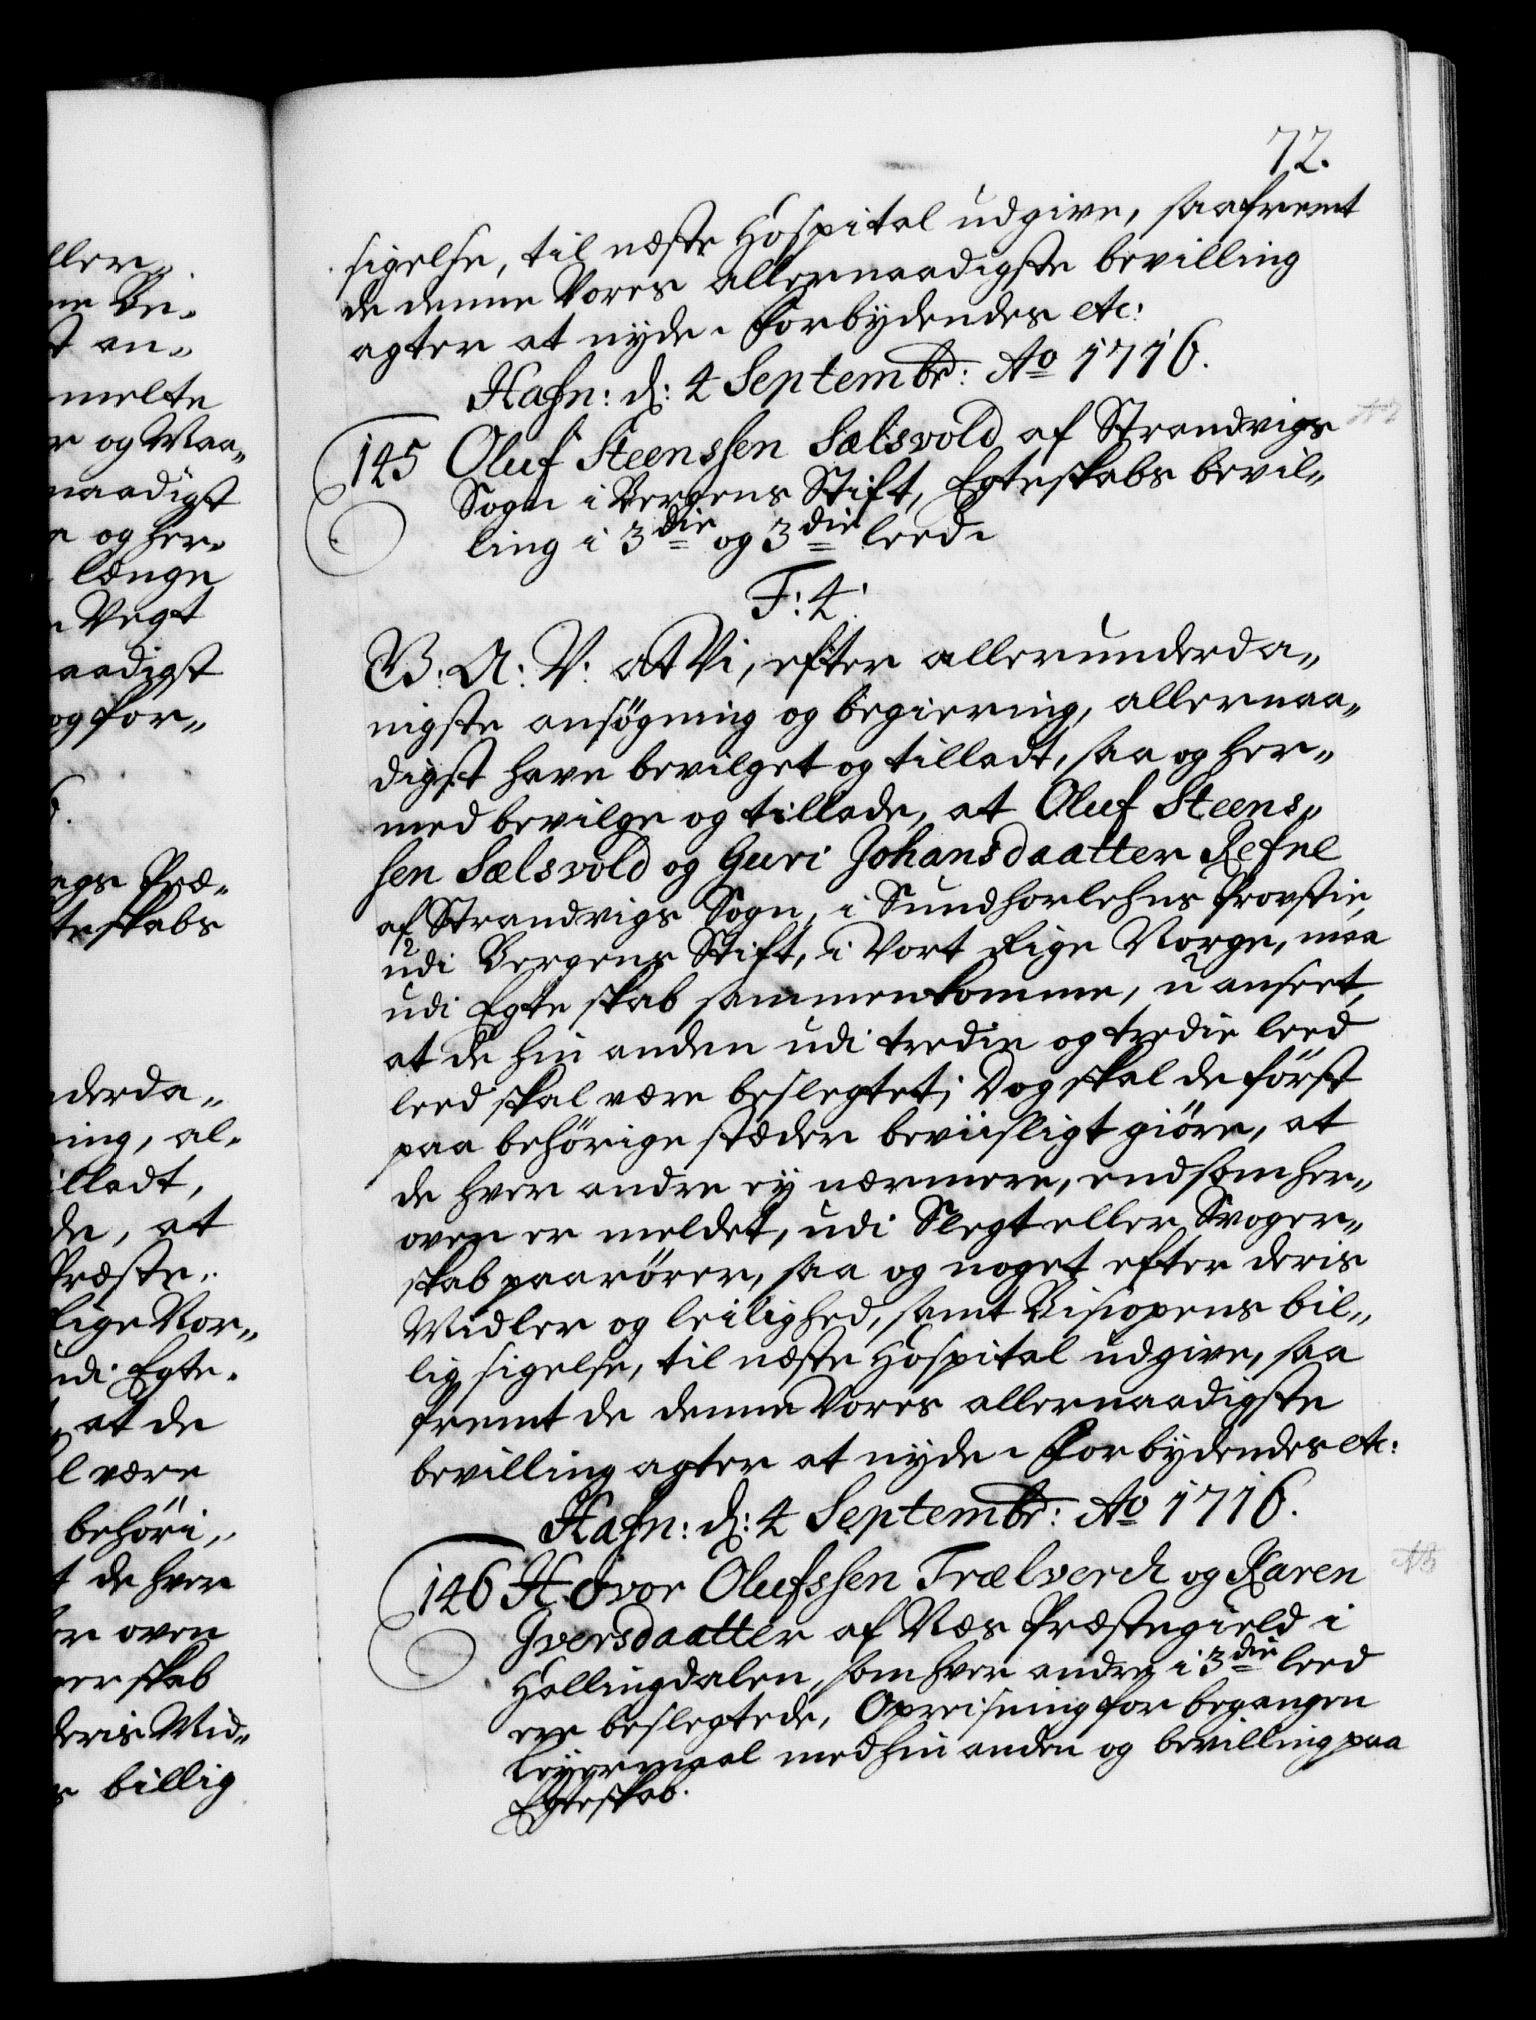 ller„
ne Be„
t an„
melte
r og Maa„
naadigst
e og her„
længe
n Vegt
aadigst
og for„
6.
ngs Præ„
teskabs
nderda„
ing, al„
illadt,
de, at
Præste„
lige Nor„
udi Egte„
, at de
l være
behöri„
t de hver
er oven
ger skab
deris Mid„
s billig
72.
sigelse, til næste Hospital udgive, saafremt
de denne Vores allernaadigste bevilling
agter at nyde. Forbydendes etc:
Hafn: d: 4 Septembr: Ao 1716.
145 Oluf Steenssen Sælsvold af Strandvigs
Sogn i Bergens Stift, Egteskabs bevil„
ling i 3die og 3die leed.
F: 4.
B: A: V: at Vi, efter allerunderda„
nigste ansøgning og begiering, allernaa„
digst have bevilget og tilladt, saa og her„
med bevilge og tillade, at Oluf Steens„
sen Sælsvold og Guri Johansdaatter Refne
af Strandvigs Sogn, i Sundhorlehns Provstie,
udi Bergens Stift, i Vort Rige Norge, maa
udi Egte skab sammenkomme, uanseet,
at de hin anden udi tredie og tredie leed
leed skal være beslegtet; Dog skal de först
paa behörige stæder beviisligt giöre, at
de hver andre ey nærmere, end som her„
oven er meldet, udi Slegt eller Svoger„
skab paarörer, saa og noget efter deris
Midler og leilighed, samt Bispens bil„
lig sigelse, til næste Hospital udgive, saa
fremt de denne Vores allernaadigste
bevilling agter at nyde. Forbydendes etc:
Hafn: d: 4 Septembr: Ao 1716.
146 Hovor Olufssen Trælverck og Karen
Iversdaatter af Næs Præstegield i
Hallingdalen, som hver andre i 3die leed
ere beslegtede, Opreisning for begangen
Leyermaal med hin anden og bevilling paa
Egteskab.